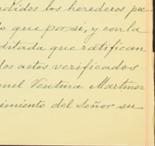 metidos los herederos pu
lo que por sí, y con la
ditada que ratifican
dos actos verificados
nel Ventura Martinez
cimiento del Señor su